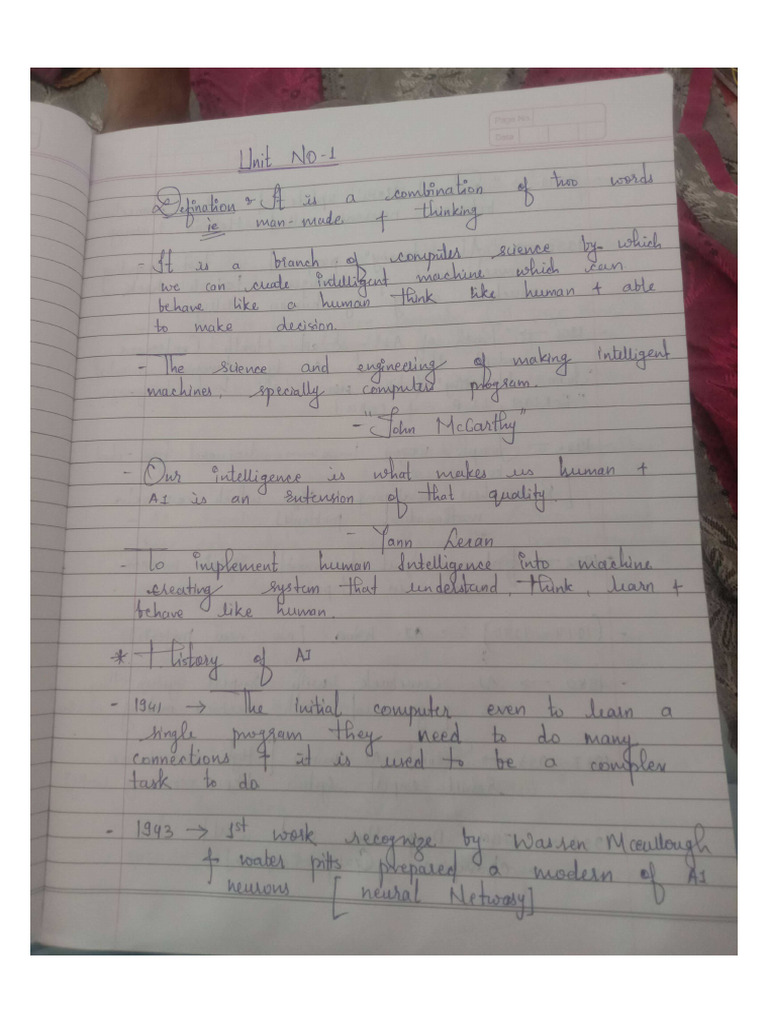 Page No.
Date
Unit NO-1
Defination :- It is a combination of two words
ie man-made + thinking
- It is a branch of computer science by which
we can create intelligent machine which can
behave like a human think like human + able
to make decision.
- The science and engineering of making intelligent
machines, specially computer program.
- "John McCarthy"
- Our intelligence is what makes us human +
AI is an extension of that quality.
- Yann Lecan
- To implement human Intelligence into machine
creating system that understand, think, learn +
behave like human.
* History of AI
- 1941 → The initial computer even to learn a
single program they need to do many
connections + it is used to be a complex
task to do
- 1943 → 1st work recognize by Warren Mccullough
+ water pitts prepared a modern of AI
neurons [neural Netwrosy]